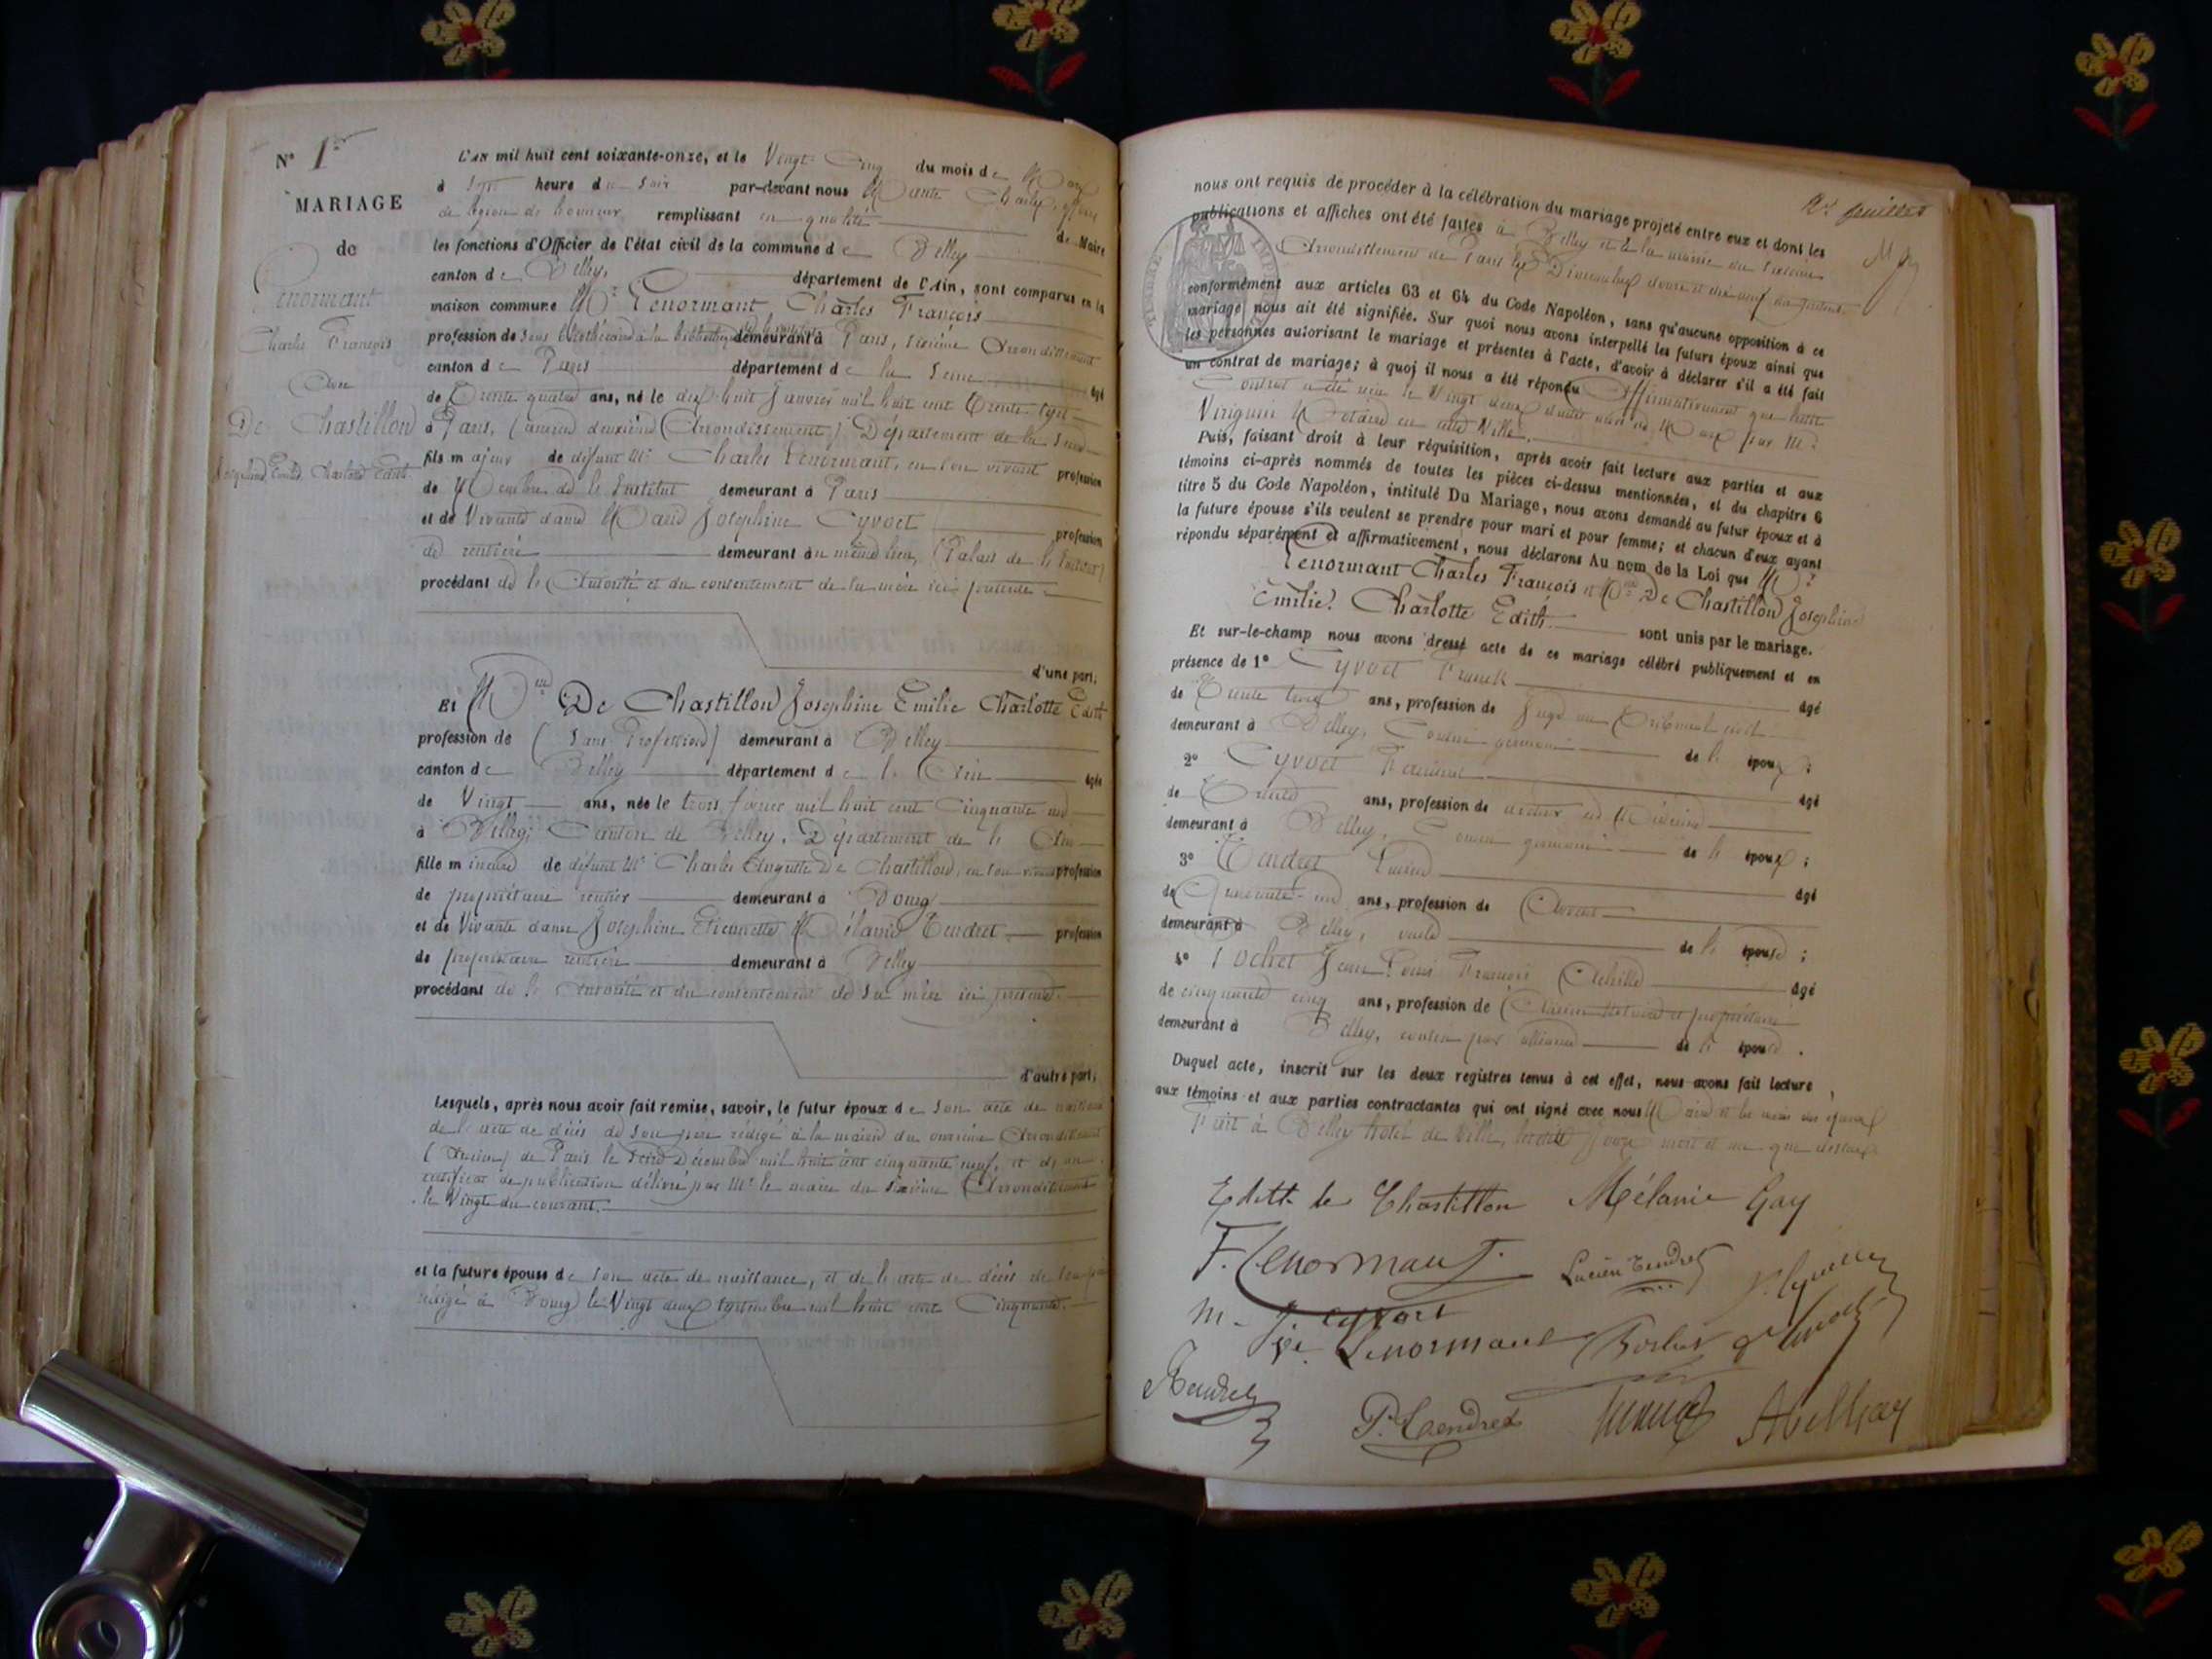 N° 1er
MARIAGE
de
Lenormant
Charles François
Avec
De Chastillon
Joséphine Emilie Charlotte Edith
L'AN mil huit cent soixante-onze, et le Vingt Cinq du mois de Mars
à heure du Soir par-devant nous
de légion de honneur remplissant en qualité de Maire
les fonctions d'Officier de l'état civil de la commune de Belley
canton de Belley, département de l'Ain, sont comparus en la
maison commune Mr Lenormant Charles François
profession de Sous Bibliothécaire à la bibliothèque demeurant à Paris, sixième Arrondissement
canton de Paris département de la Seine âgé
de Trente quatre ans, né le dix-huit Janvier mil huit cent Trente Sept
à Paris, (ancien deuxième Arrondissement) Département de la Seine
fils majeur de défunt Mr Charles Lenormant, en son vivant profession
de Membre de l'Institut demeurant à Paris
et de Vivante dame Marie Joséphine Cyvoct profession
de rentière demeurant au même lieu, (Palais de l'Institut)
procédant de l'Autorité et du consentement de sa mère ici présente
d'une part;
Et Mlle De Chastillon Joséphine Emilie Charlotte Edith
profession de (Sans Profession) demeurant à Belley
canton de Belley département de l'Ain âgée
de Vingt ans, née le trois février mil huit cent Cinquante un
à Belley, Canton de Belley, Département de l'Ain
fille mineure de défunt Mr Charles Auguste De Chastillon, en son vivant profession
de propriétaire rentier demeurant à Bourg
et de Vivante dame Joséphine Etiennette Mélanie Tendret profession
de propriétaire rentière demeurant à Belley
procédant de l'Autorité et du consentement de sa mère ici présente
d'autre part;
Lesquels, après nous avoir fait remise, savoir, le futur époux de son acte de naissance
de l'acte de décès de son père rédigé à la mairie du onzième Arrondissement
(Ancien) de Paris le Décembre mil huit cent cinquante neuf, et d'un
certificat de publication délivré par Mr le maire du sixième Arrondissement
le Vingt du courant.
et la future épouse de son acte de naissance, et de l'acte de décès de son père
rédigé à Bourg le Vingt deux Septembre mil huit cent Cinquante.
2e feuillet
nous ont requis de procéder à la célébration du mariage projeté entre eux et dont les
publications et affiches ont été faites à Belley et à la mairie du sixième
Arrondissement de Paris les Dimanches douze et dix neuf du
conformément aux articles 63 et 64 du Code Napoléon, sans qu'aucune opposition à ce
mariage nous ait été signifiée. Sur quoi nous avons interpellé les futurs époux ainsi que
les personnes autorisant le mariage et présentes à l'acte, d'avoir à déclarer s'il a été fait
un contrat de mariage; à quoi il nous a été répondu Affirmativement que
Contrat a été le Vingt deux par Me
Viriguin Notaire en cette Ville.
Puis, faisant droit à leur réquisition, après avoir fait lecture aux parties et aux
témoins ci-après nommés de toutes les pièces ci-dessus mentionnées, et du chapitre 6
titre 5 du Code Napoléon, intitulé Du Mariage, nous avons demandé au futur époux et à
la future épouse s'ils veulent se prendre pour mari et pour femme; et chacun d'eux ayant
répondu séparément et affirmativement, nous déclarons Au nom de la Loi que Mr
Lenormant Charles François et Mlle De Chastillon Joséphine
Emilie Charlotte Edith sont unis par le mariage.
Et sur-le-champ nous avons dressé acte de ce mariage célébré publiquement et en
présence de 1° Cyvoct Franck âgé
de Trente trois ans, profession de Juge au Tribunal civil
demeurant à Belley, Cousin germain de l'époux;
2° Cyvoct âgé
de Trente ans, profession de docteur en Médecine
demeurant à Belley, Cousin germain de l'époux;
3° Tendret Lucien âgé
de Quarante un ans, profession de Avocat
demeurant à Belley, oncle de l'épouse;
4° Rochet Jean Louis François Achille âgé
de cinquante cinq ans, profession de Ancien Notaire et propriétaire
demeurant à Belley, cousin par alliance de l'épouse.
Duquel acte, inscrit sur les deux registres tenus à cet effet, nous avons fait lecture
aux témoins et aux parties contractantes qui ont signé avec nous Maire
Fait à Belley hôtel de Ville, que dessus
Edith de Chastillon Mélanie Gay
F. Lenormant. Lucien Tendret
M. J. Cyvoct
Lenormant
Tendret
P. Tendret
Abel Gay